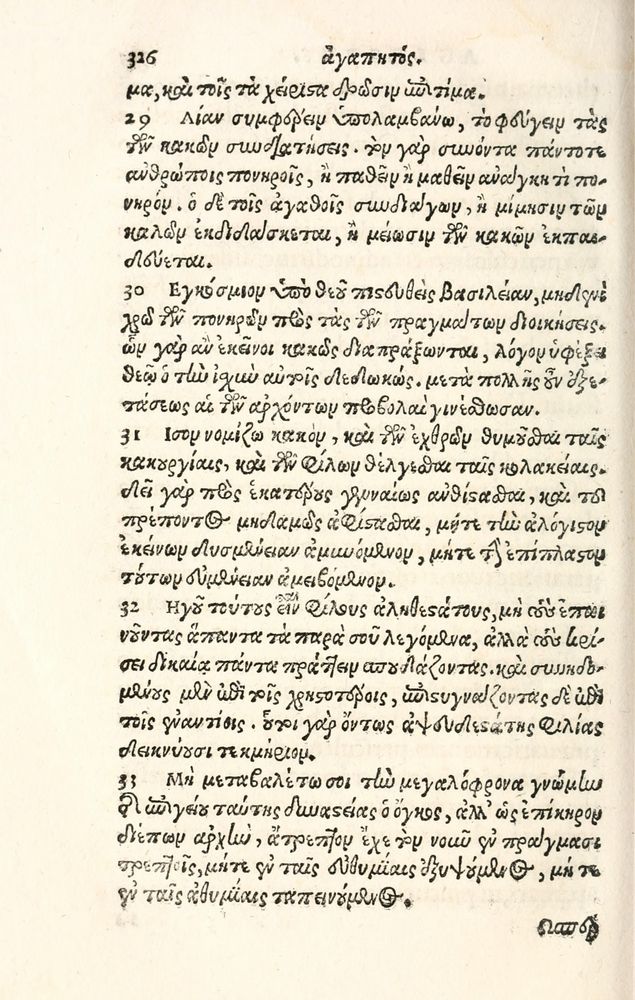 326 ἀγαπητός.
μα, καὶ τοῖς τὰ χείριστα δρῶσιν ἐπίτιμα.
29 Λίαν συμφέρειν ὑπολαμβάνω, τὸ φεύγειν τὰς
τῶν κακῶν συνδιαιτήσεις. τὸν γὰρ συνόντα πάντοτε
ἀνθρώποις πονηροῖς, ἢ παθεῖν ἢ μαθεῖν ἀνάγκη τὶ πο-
νηρόν. ὁ δὲ τοῖς ἀγαθοῖς συνδιάγων, ἢ μίμησιν τῶν
καλῶν ἐκδιδάσκεται, ἢ μείωσιν τῶν κακῶν ἐκπαι-
δεύεται.
30 Εγκόσμιον ὑπὸ θεοῦ πιστευθεὶς βασιλείαν, μηδενὶ
χρῶ τῶν πονηρῶν πρὸς τὰς τῶν πραγμάτων διοικήσεις.
ὧν γὰρ ἂν ἐκεῖνοι κακῶς διαπράξωνται, λόγον ὑφέξει
θεῷ ὁ τὴν ἰσχὺν αὐτοῖς δεδωκώς. μετὰ πολλῆς οὖν ἐξε-
τάσεως αἱ τῶν ἀρχόντων προβολαὶ γινέσθωσαν.
31 Ισον νομίζω κακὸν, καὶ τῶν ἐχθρῶν θυμοῦσθαι ταῖς
κακουργίαις, καὶ τῶν φίλων θέλγεσθαι ταῖς κολακείαις.
δεῖ γὰρ πρὸς ἑκατέρους γενναίως ἀνθίστασθαι, καὶ τοῦ
πρέποντος μηδαμῶς ἀφίστασθαι, μήτε τὴν ἀλόγιστον
ἐκείνων δυσμένειαν ἀμυνόμενον, μήτε τὴν ἐπίπλαστον
τούτων εὐμένειαν ἀμειβόμενον.
32 Ηγοῦ τούτους εἶναι φίλους ἀληθεστάτους, μὴ τοὺς ἐπαι
νοῦντας ἅπαντα τὰ παρὰ σοῦ λεγόμενα, ἀλλὰ τοὺς κρί-
σει δικαίᾳ πάντα πράττειν σπουδάζοντας. καὶ συνηδο-
μένους μὲν ἐπὶ τοῖς χρηστοτέροις, ἐπιστυγνάζοντας δὲ ἐπὶ
τοῖς ἐναντίοις. οὗτοι γὰρ ὄντως ἀψευδεστάτης φιλίας
δεικνύουσι τεκμήριον.
33 Μὴ μεταβαλέτω σοι τὴν μεγαλόφρονα γνώμην
τῆς ἐπιγείου ταύτης δυναστείας ὁ ὄγκος, ἀλλ' ὡς ἐπίκηρον
διέπων ἀρχὴν, ἄτρεπτον ἔχε τὸν νοῦν ἐν πράγμασι
τρεπτοῖς, μήτε ἐν ταῖς εὐθυμίαις ἐξυψούμενος, μήτε
ἐν ταῖς ἀθυμίαις ταπεινούμενος.
Ωσπερ